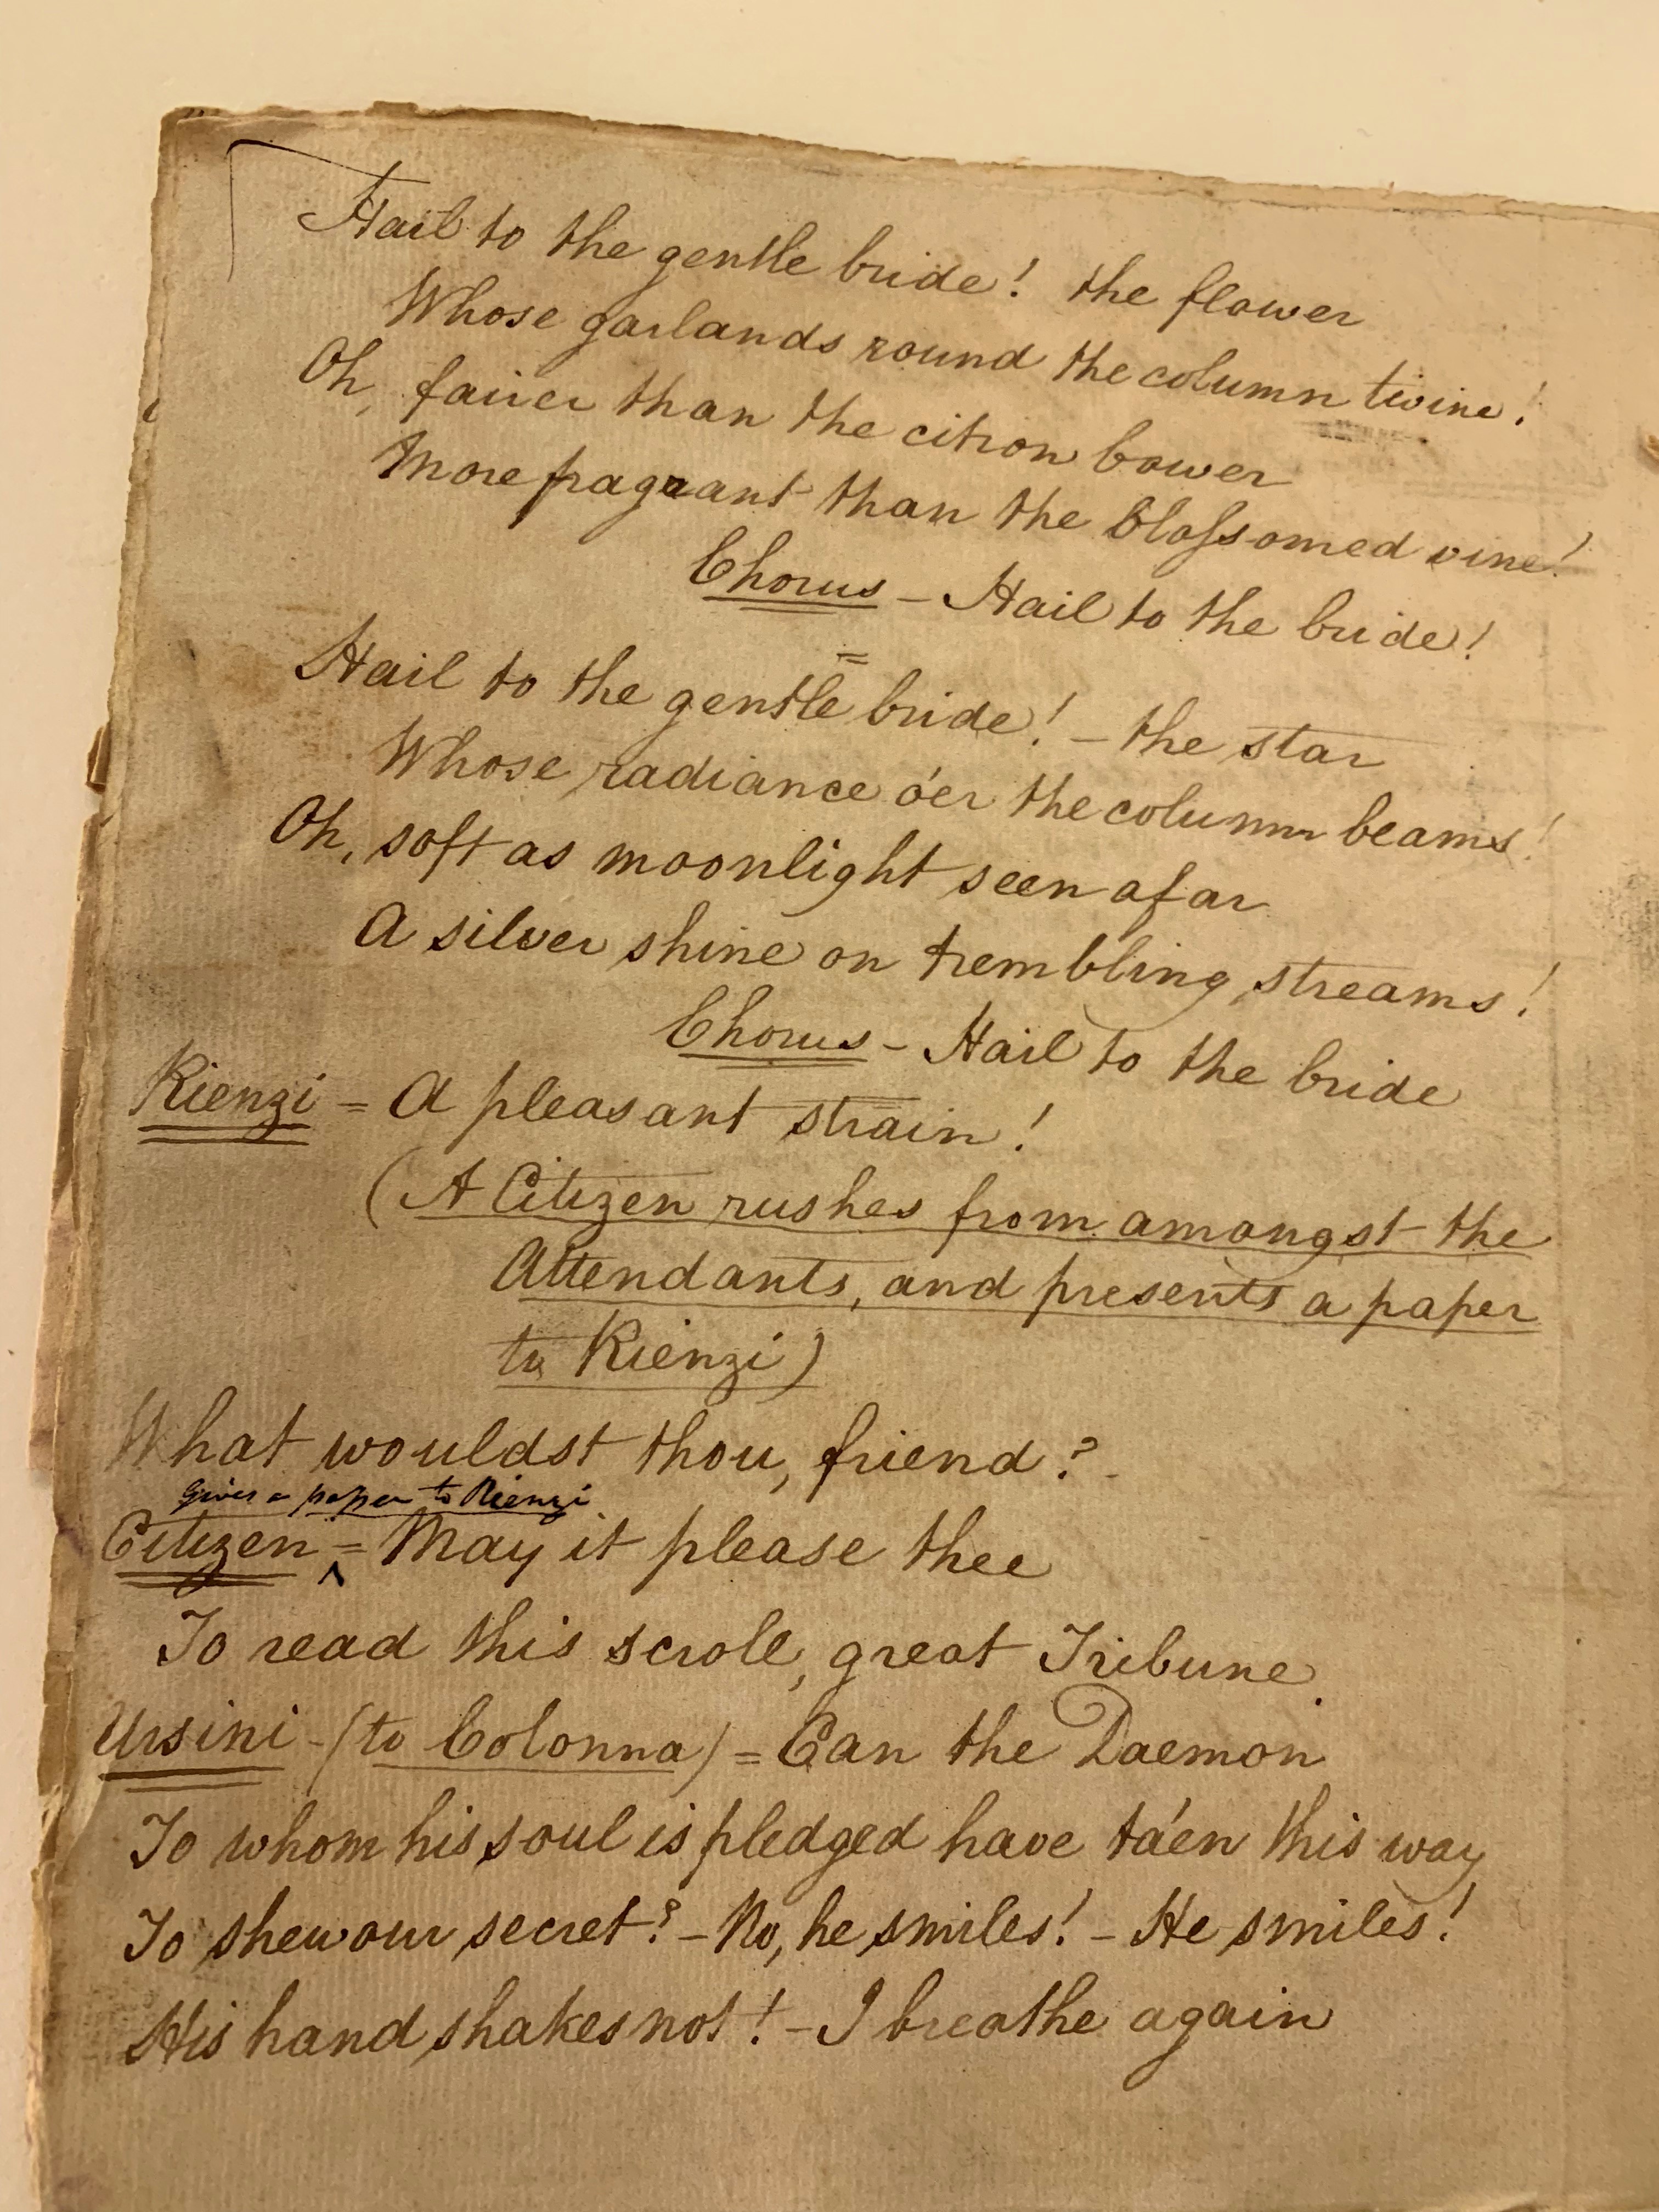 Hail to the gentle bride! the flower
Whose garlands round the column twine!
Oh, fairer than the citron bower
More fragrant than the blossomed vine!
Chorus - Hail to the bride!
Hail to the gentle bride! - the star
Whose radiance o'er the column beams!
Oh, soft as moonlight seen afar
A silver shine on trembling streams!
Chorus - Hail to the bride
Rienzi = A pleasant strain!
(A Citizen rushes from amongst the
Attendants, and presents a paper
to Rienzi)
What wouldst thou, friend? -
Gives a paper to Rienzi
Citizen = May it please thee
To read this scroll, great Tribune.
Ursini - (to Colonna) = Can the Daemon
To whom his soul is pledged have ta'en this way
To shew our secret? - No, he smiles! - He smiles!
His hand shakes not! - I breathe again